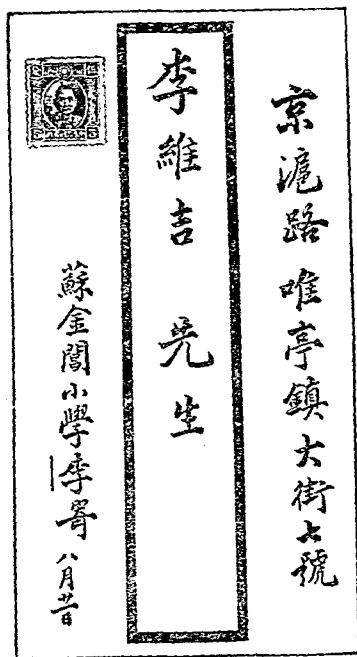 京滬路唯亭鎮大街六號
李維吉 先生
蘇金閶小學李寄 八月廿日